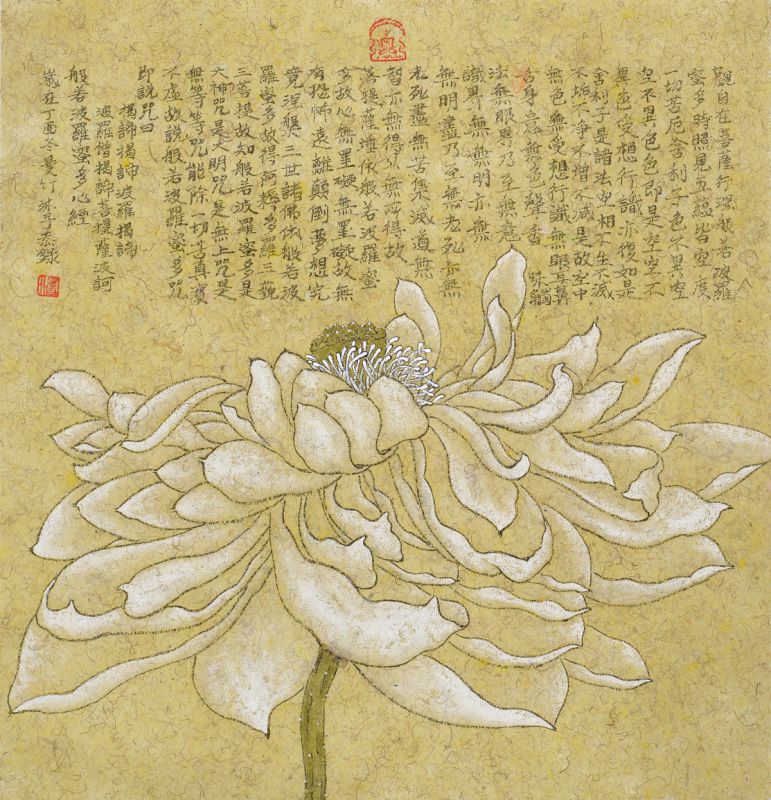 觀自在菩薩行深般若波羅
蜜多時照見五蘊皆空度
一切苦厄舍利子色不異空
空不異色色即是空空不
是色受想行識亦復如是
舍利子是諸法空相不生不滅
不垢不淨不增不減是故空中
無色無受想行識無眼耳鼻
舌身意無色聲香味觸
法無眼界乃至無意
識界無無明亦無
無明盡乃至無老死亦無
老死盡無苦集滅道無
智亦無得以無所得故
菩提薩埵依般若波羅蜜
多故心無罣礙無罣礙故無
有恐怖遠離顛倒夢想究
竟涅槃三世諸佛依般若波
羅蜜多故得阿耨多羅三藐
三菩提故知般若波羅蜜多是
大神咒是大明咒是無上咒是
無等等咒能除一切苦真實
不虛故說般若波羅蜜多咒
即說咒曰
揭諦揭諦波羅揭諦
波羅僧揭諦菩提薩波訶
般若波羅蜜多心經
歲在丁酉冬曼竹于恭錄